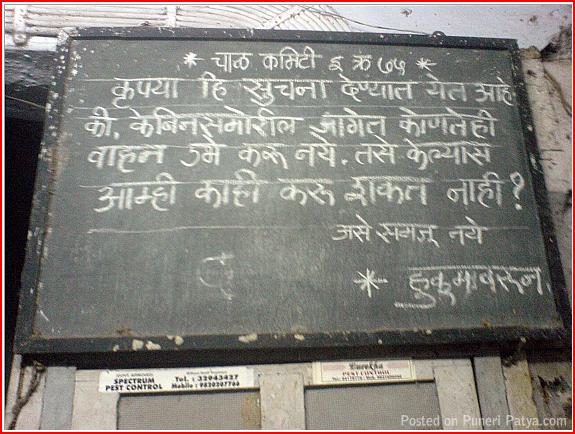 * चाळ कमिटी इ क्र ७५ *
कृपया हि सुचना देण्यात येत आहे
की, केबिनसमोरील जागेत कोणतेही
वाहन उभे करू नये. तसे केल्यास
आम्ही काही करू शकत नाही?
असे समजू नये
* हुकुमावरून
SPECTRUM
PEST CONTROL
Tel.: 32943427
Mobile: 9820207766
Eurekha
PEST CONTROL
Posted on Puneri Patya.com